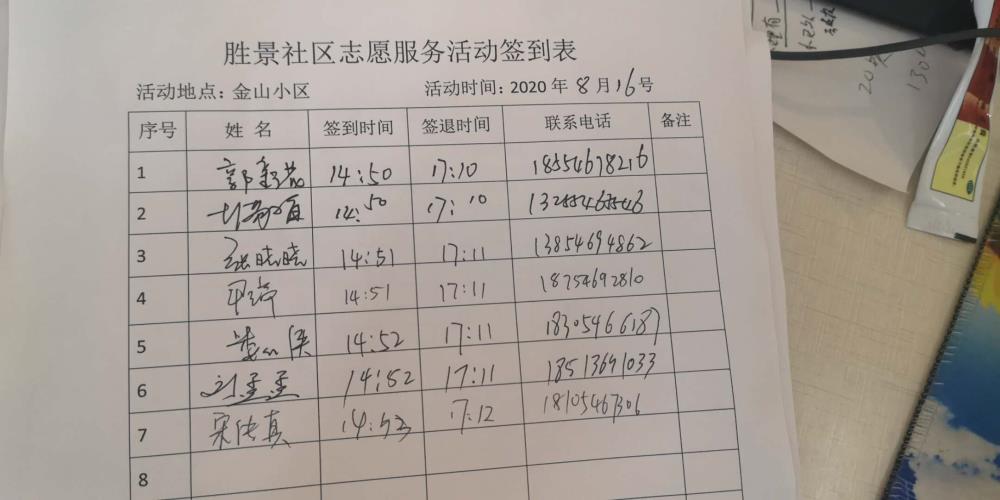 胜景社区志愿服务活动签到表
活动地点：金山小区 活动时间：2020 年 8 月 16 号
序号 姓 名 签到时间 签退时间 联系电话 备注
1 14:50 17:10 18554678216
2 14:50 17:10
3 张晓晓 14:51 17:11 13854694862
4 14:51 17:11 18754692810
5 14:52 17:11 18305466187
6 刘孟孟 14:52 17:11 18513691033
7 宋传真 14:53 17:12 18105467306
8